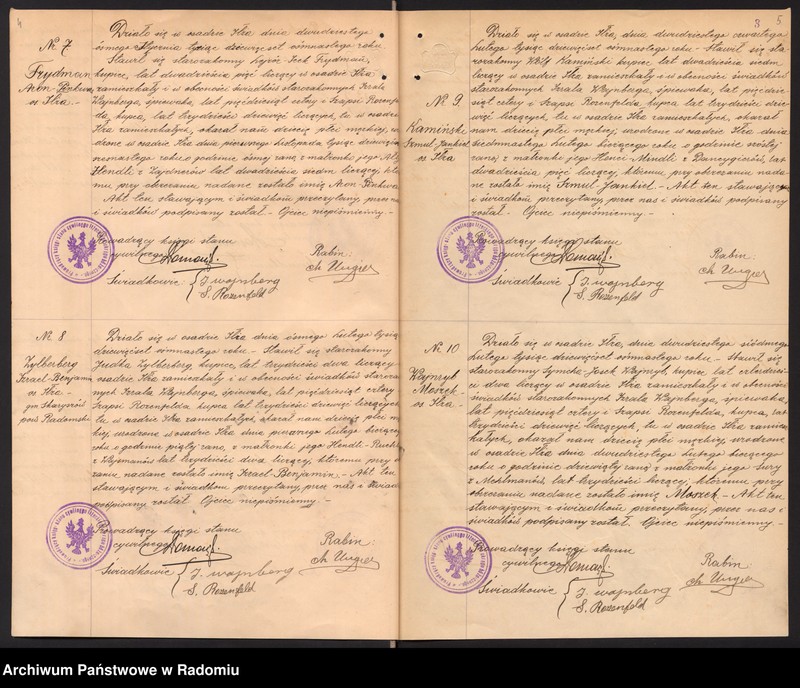 4
№ 7
Frydman
Aron-Rachwa
os Iłża.-
Działo się w osadzie Iłża dnia dwudziestego
ósmego stycznia tysiąc dziewięćset osiemnastego roku
Stawił się starozakonny Icek Frydman,
kupiec, lat dwadzieścia pięć liczący w osadzie Iłża
zamieszkały i w obecności świadków starozakonnych Izrala
Wajnberga, śpiewaka, lat pięćdziesiąt cztery i Szapsi Rozenfel-
da, kupca, lat trzydzieści dziewięć liczących, tu w osadzie
Iłża zamieszkałych, okazał nam dziecię płci męzkiej, uro-
dzone w osadzie Iłża dnia pierwszego listopada tysiąc dziewięćset
roku o godzinie ósmej rano, z małżonki jego
Hendli z lat dwadzieścia siedm liczącej, które-
mu przy obrzezaniu nadane zostało imię Aron-
Akt ten stawającym i świadkom przeczytany, przez nas
i świadków podpisany został.- Ojciec niepiśmienny.-
Prowadzący księgi stanu
cywilnego
Rabin:
Ch Unger
Świadkowie: { I. wajnberg
S. Rozenfeld
№ 8
Zylberberg
Izrael-Benjamin
os Iłża.-
gm Skaryszew
pow Radomski
Działo się w osadzie Iłża dnia ósmego lutego tysiąc
dziewięćset osiemnastego roku.- Stawił się starozakonny
Judka Zylberberg, kupiec, lat trzydzieści dwa liczący
osadzie Iłża zamieszkały i w obecności świadków starozakon-
nych Izrala Wajnberga, śpiewaka, lat pięćdziesiąt cztery i
Szapsi Rozenfelda, kupca lat trzydzieści dziewięć liczących,
tu w osadzie Iłża zamieszkałych, okazał nam dziecię płci mę-
zkiej, urodzone w osadzie Iłża dnia pierwszego lutego bieżącego
roku o godzinie piątej rano, z małżonki jego Hendli-Ruchli
z Wajsmanów lat trzydzieści dwa liczącej, któremu przy obrze-
zaniu nadane zostało imię Izrael Benjamin.- Akt ten
stawającym i świadkom przeczytany, przez nas i świadków
podpisany został Ojciec niepiśmienny.-
Prowadzący księgi stanu
cywilnego
Rabin:
Ch Unger
Świadkowie { I. wajnberg
S. Rozenfeld
3 5
№ 9.
Kamiński
Szmul-Jankiel
os Iłża
Działo się w osadzie Iłża, dnia dwudziestego czwartego
lutego tysiąc dziewięćset osiemnastego roku.- Stawił się sta-
rozakonny Wolf Kamiński kupiec lat dwadzieścia siedm
liczący w osadzie Iłża zamieszkały i w obecności świadków
starozakonnych Izrala Wajnberga, śpiewaka, lat pięćdzie-
siąt cztery i Szapsi Rozenfelda, kupca lat trzydzieści dzie-
więć liczących, tu w osadzie Iłża zamieszkałych, okazał
nam dziecię płci męzkiej, urodzone w osadzie Iłża dnia
siedmnastego lutego bieżącego roku o godzinie szóstej
rano, z małżonki jego Hinci Mindli z Dancygierów, lat
dwadzieścia pięć liczącej, któremu przy obrzezaniu nada-
ne zostało imię Szmul Jankiel.- Akt ten stawającym
i świadkom przeczytany, przez nas i świadków podpisany
został.- Ojciec niepiśmienny.-
Prowadzący księgi stanu
cywilnego
Rabin:
Ch Unger
Świadkowie { I. wajnberg
S. Rozenfeld
№ 10
Wajnryb
Moszek.-
os Iłża.-
Działo się w osadzie Iłża, dnia dwudziestego siódmego
lutego tysiąc dziewięćset osiemnastego roku.- Stawił się
starozakonny Symcha-Josek Wajnryb, kupiec lat czterdzieś-
ci dwa liczący w osadzie Iłża zamieszkały i w obecności
świadków starozakonnych Izrala Wajnberga, śpiewaka,
lat pięćdziesiąt cztery i Szapsi Rozenfelda, kupca, lat
trzydzieści dziewięć liczących, tu w osadzie Iłża zamiesz-
kałych, okazał nam dziecię płci męzkiej, urodzone
w osadzie Iłża dnia dwudziestego lutego bieżącego
roku o godzinie dziewiątej rano, z małżonki jego Sury
z Mehlmanów, lat trzydzieści liczącej, któremu przy
obrzezaniu nadane zostało imię Moszek.- Akt ten
stawającym i świadkom przeczytany, przez nas i
świadków podpisany został. Ojciec niepiśmienny.-
Prowadzący księgi stanu
cywilnego
Rabin:
Ch Unger
Świadkowie { I. wajnberg
S. Rozenfeld
Archiwum Państwowe w Radomiu